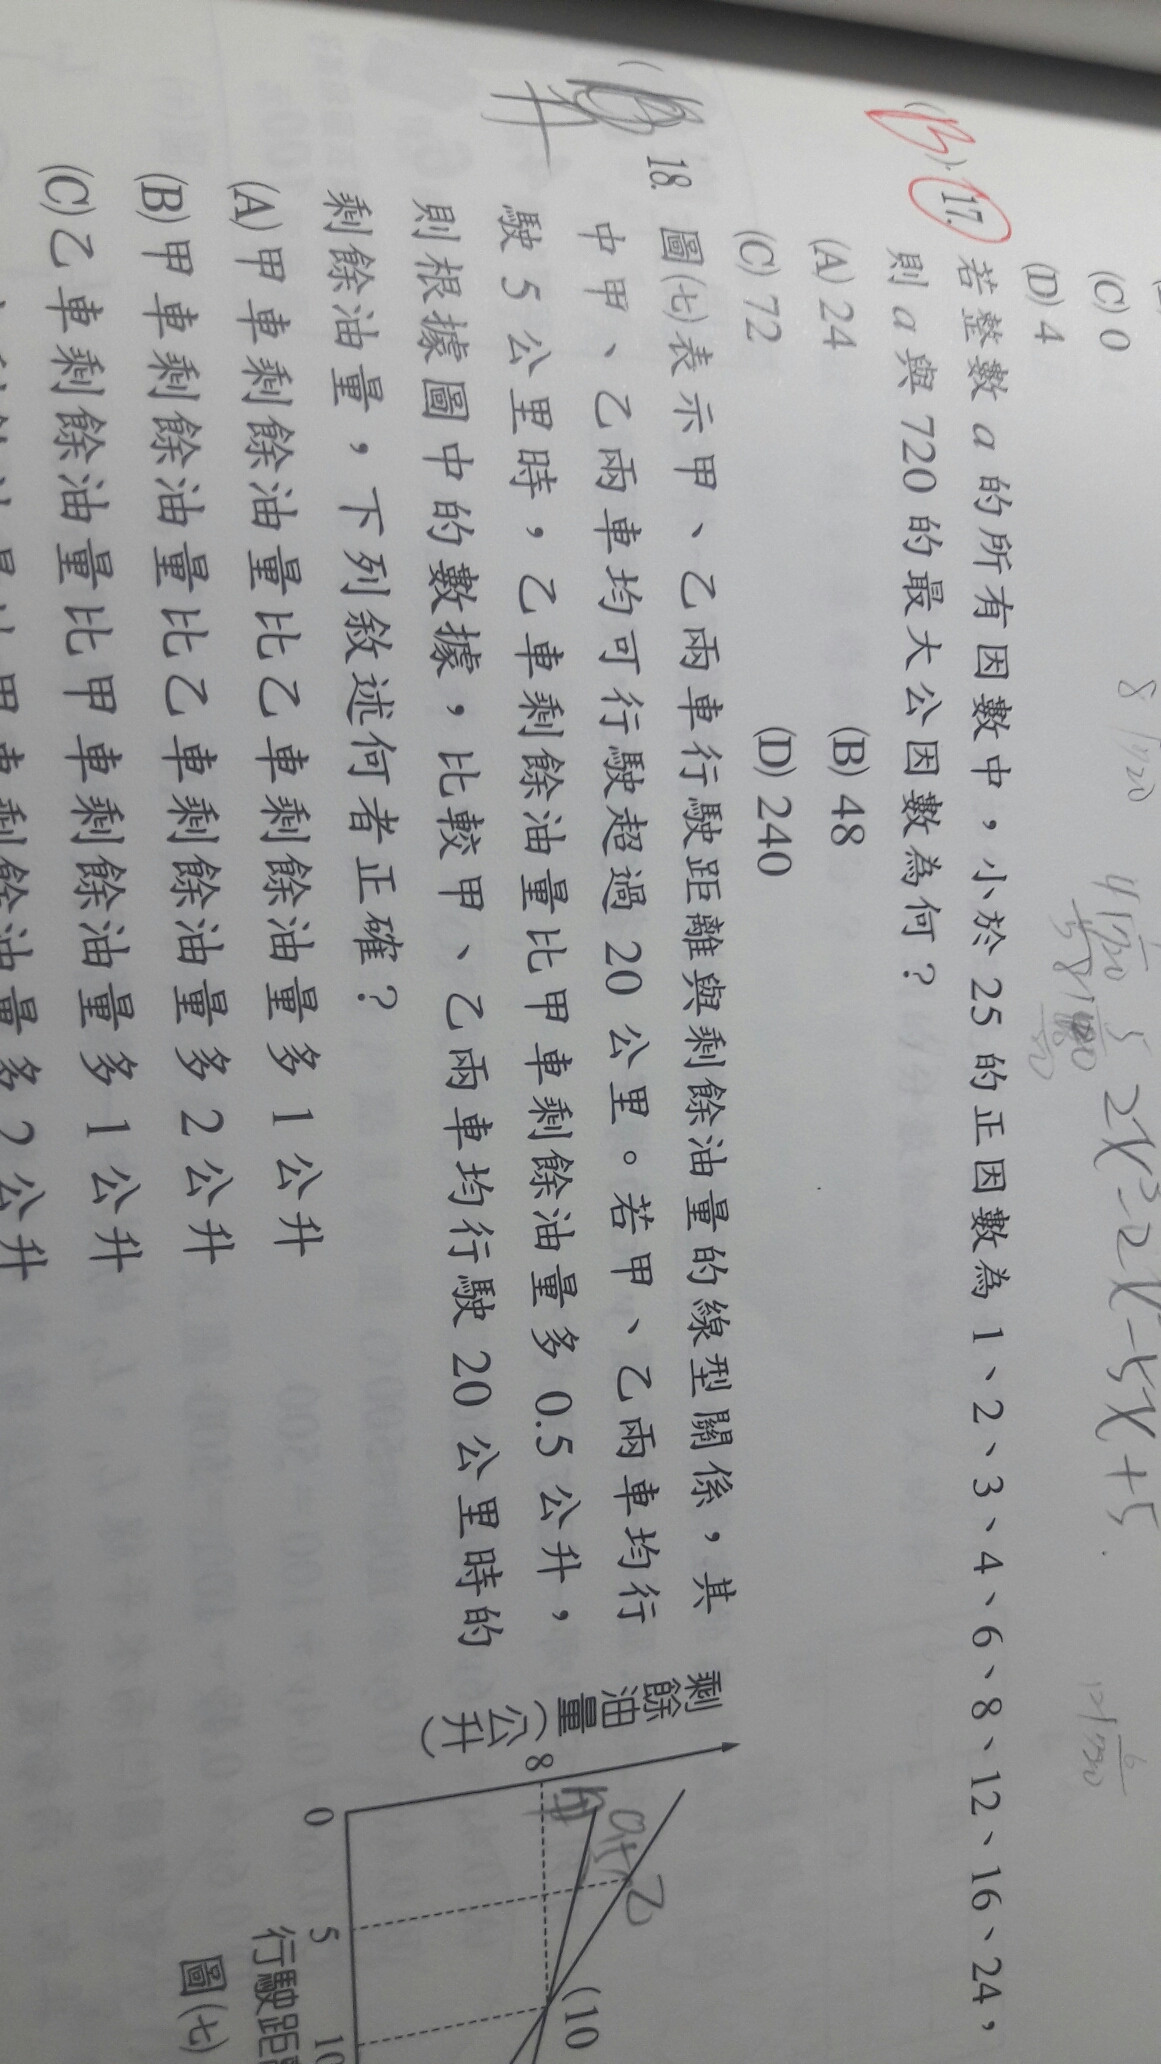 (C) 0
(D) 4
(B) 17. 若整數 a 的所有因數中，小於 25 的正因數為 1、2、3、4、6、8、12、16、24，
則 a 與 720 的最大公因數為何？
(A) 24 (B) 48
(C) 72 (D) 240
18. 圖(七)表示甲、乙兩車行駛距離與剩餘油量的線型關係，其
中甲、乙兩車均可行駛超過 20 公里。若甲、乙兩車均行
駛 5 公里時，乙車剩餘油量比甲車剩餘油量多 0.5 公升，
則根據圖中的數據，比較甲、乙兩車均行駛 20 公里時的
剩餘油量，下列敘述何者正確？
(A) 甲車剩餘油量比乙車剩餘油量多 1 公升
(B) 甲車剩餘油量比乙車剩餘油量多 2 公升
(C) 乙車剩餘油量比甲車剩餘油量多 1 公升
甲車剩餘油量多 2 公升
2x²-2x-5x+5
剩餘油量(公升)
8
甲
乙
(10
0
5
10
行駛距
圖(七)